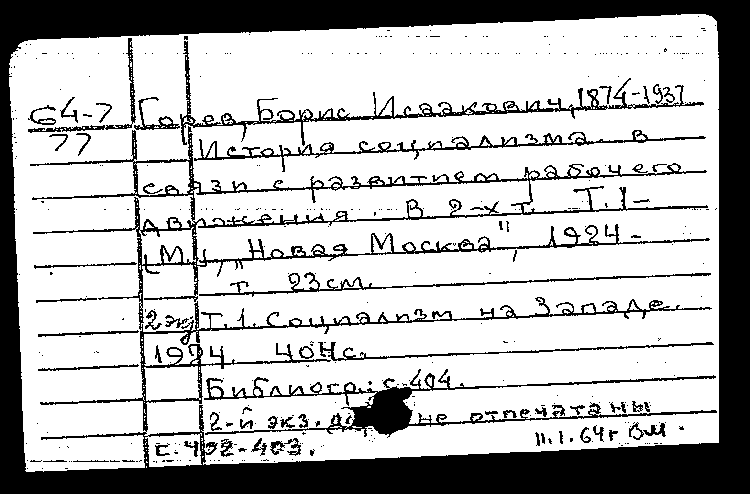 64-7 Горев, Борис Исаакович, 1874-1937
77 История социализма в
связи с развитием рабочего
движения. В 2-х т. Т.1-
[М.], „Новая Москва", 1924-
т. 23см.
2 экз Т.1. Социализм на Западе.
1924. 404с.
Библиогр.: с.404.
2-й экз. не отпечатаны
с. 402-403. 11.1.64г ВМ.